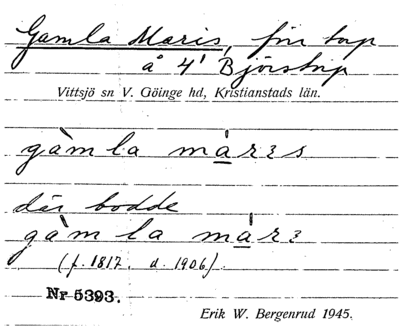 Gamla Maris, för torp
å 4¹ Björstorp
Vittsjö sn V. Göinge hd, Kristianstads län.
gàmla márɛs
där bodde
gàmla márɛ
(f. 1817. d. 1906).
Nr 5393.
Erik W. Bergenrud 1945.